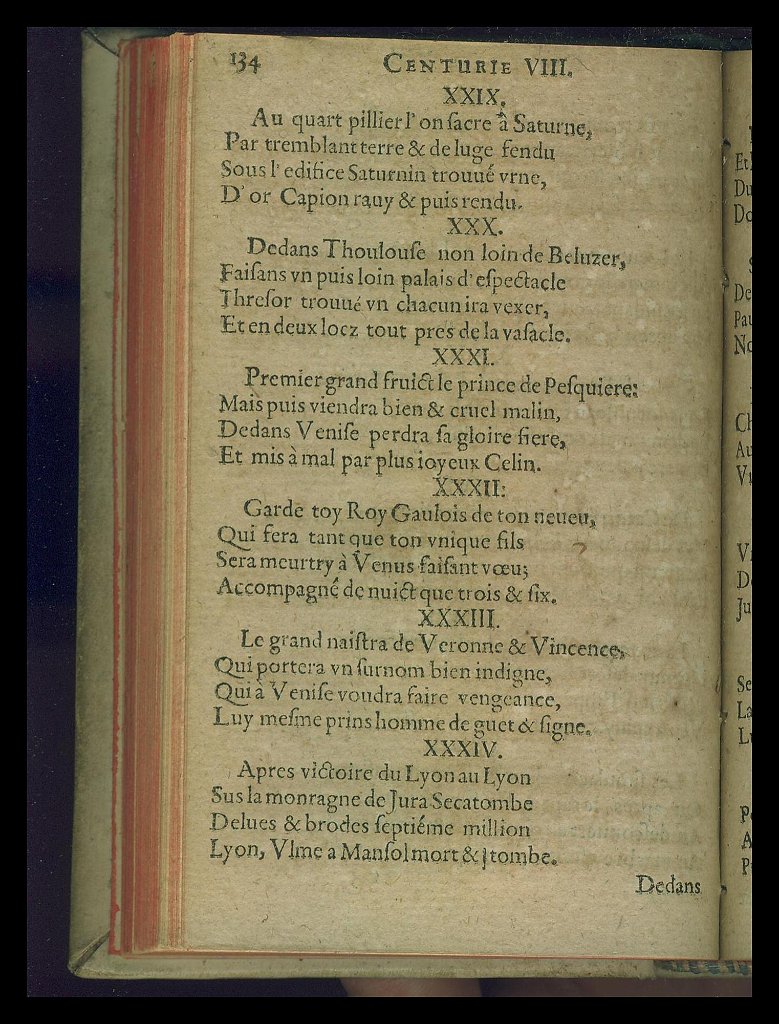 134 CENTURIE VIII.
XXIX.
Au quart pillier l' on ſacre à Saturne,
Par tremblant terre & de luge fendu
Sous l' edifice Saturnin trouué vrne,
D' or Capion rauy & puis rendu.
XXX.
Dedans Thoulouſe non loin de Beluzer,
Faiſans vn puis loin palais d' eſpectacle
Threſor trouué vn chacun ira vexer,
Et en deux locz tout pres de la vaſacle.
XXXI.
Premier grand fruict le prince de Peſquiere:
Mais puis viendra bien & cruel malin,
Dedans Veniſe perdra ſa gloire fiere,
Et mis à mal par plus ioyeux Celin.
XXXII:
Garde toy Roy Gaulois de ton neueu,
Qui fera tant que ton vnique fils
Sera meurtry à Venus faiſant vœu;
Accompagné de nuict que trois & ſix.
XXXIII.
Le grand naiſtra de Veronne & Vincence,
Qui portera vn ſurnom bien indigne,
Qui à Veniſe voudra faire vengeance,
Luy meſme prins homme de guet & ſigne.
XXXIV.
Apres victoire du Lyon au Lyon
Sus la monragne de Jura Secatombe
Delues & brodes ſeptiéme million
Lyon, Vlme a Manſol mort & tombe.
Dedans
Et
Du
Do
De
Pau
No
Ch
Au
Vi
D
Ju
Se
La